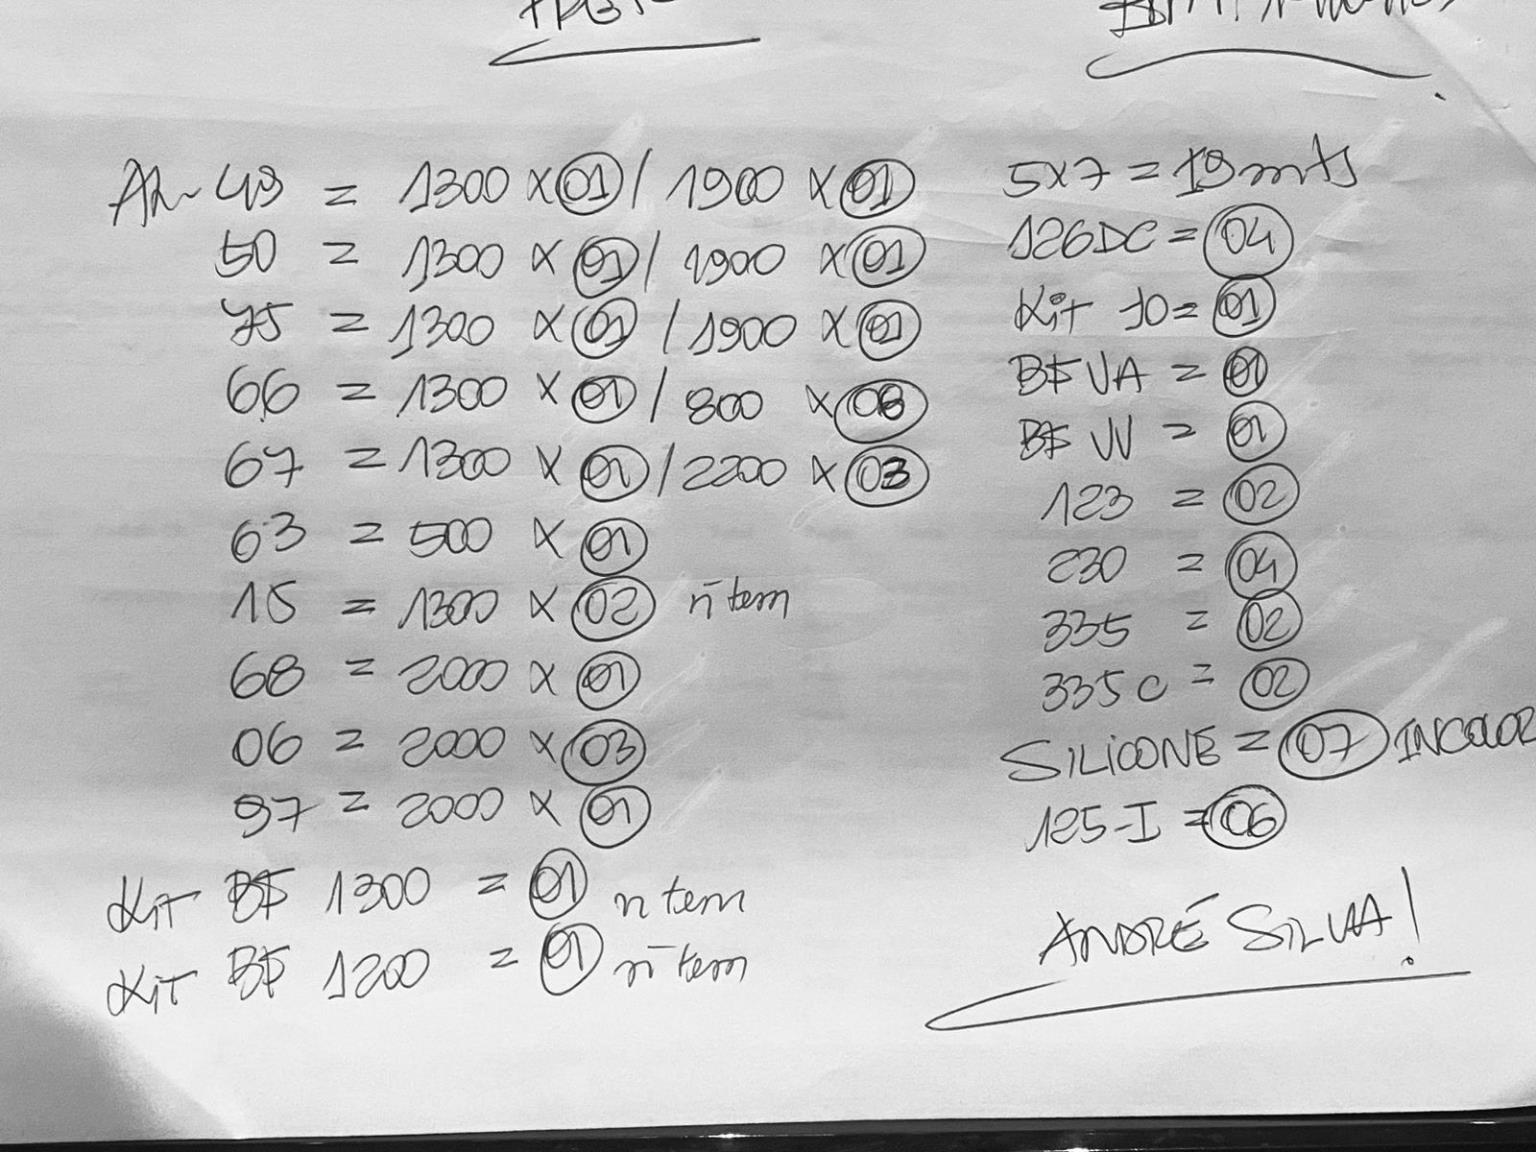 AL 49 = 1300 x 01 / 1900 x 01
50 = 1300 x 01 / 1900 x 01
75 = 1300 x 01 / 1900 x 01
66 = 1300 x 01 / 800 x 08
67 = 1300 x 01 / 2200 x 03
63 = 500 x 01
15 = 1300 x 02 ñ tem
68 = 2000 x 01
06 = 2000 x 03
97 = 2000 x 01
Kit B$ 1300 = 01 n tem
Kit B$ 1200 = 01 ñ tem
5x7 = 19 mts
126DC = 04
Kit 10 = 01
B$ VA = 01
B$ VV = 01
123 = 02
230 = 04
335 = 02
335 C = 02
SILICONE = 07 INCOLOR
125-I = 06
ANDRÉ SILVA!